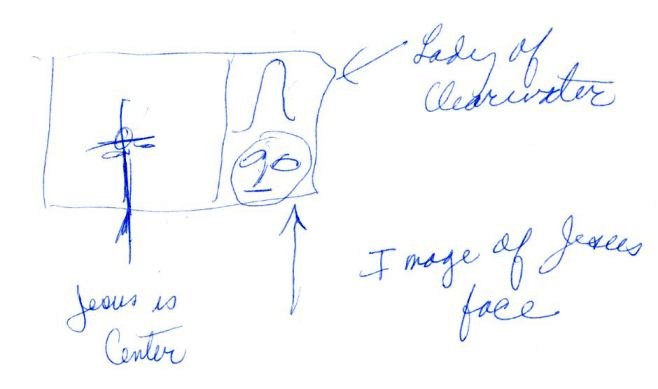 Lady of
Clearwater
90
Image of Jesus
face
Jesus is
Center